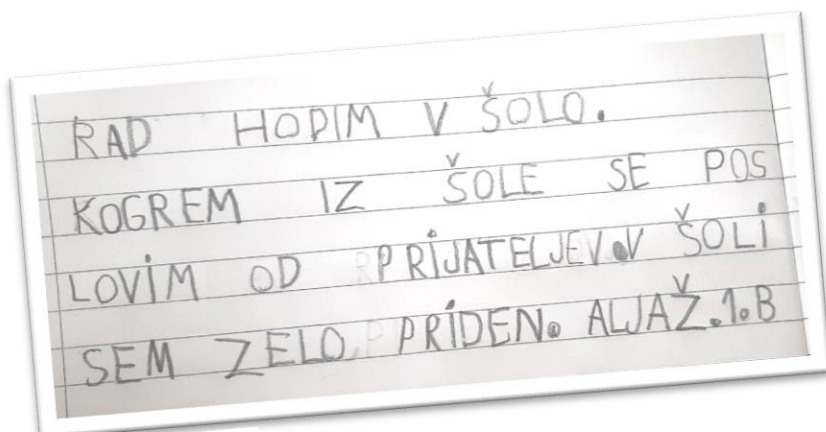 RAD HODIM V ŠOLO.
KOGREM IZ ŠOLE SE POS
LOVIM OD PRIJATELJEV.V ŠOLI
SEM ZELO PRIDEN. ALJAŽ.1.B